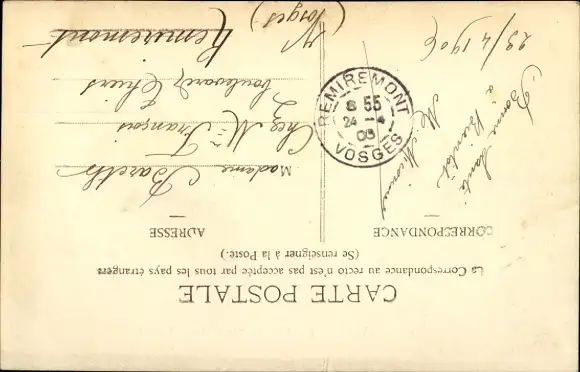 CARTE POSTALE
La Correspondance au recto n'est pas acceptée par tous les pays étrangers
(Se renseigner à la Poste.)
CORRESPONDANCE
ADRESSE
23/4 1906
Bonne Santé
à Bientôt
M.
Madame Barette
Chez M. François
boulevard Thiers
Remiremont
(Vosges)
REMIREMONT
8 55
24 - 4
06
VOSGES